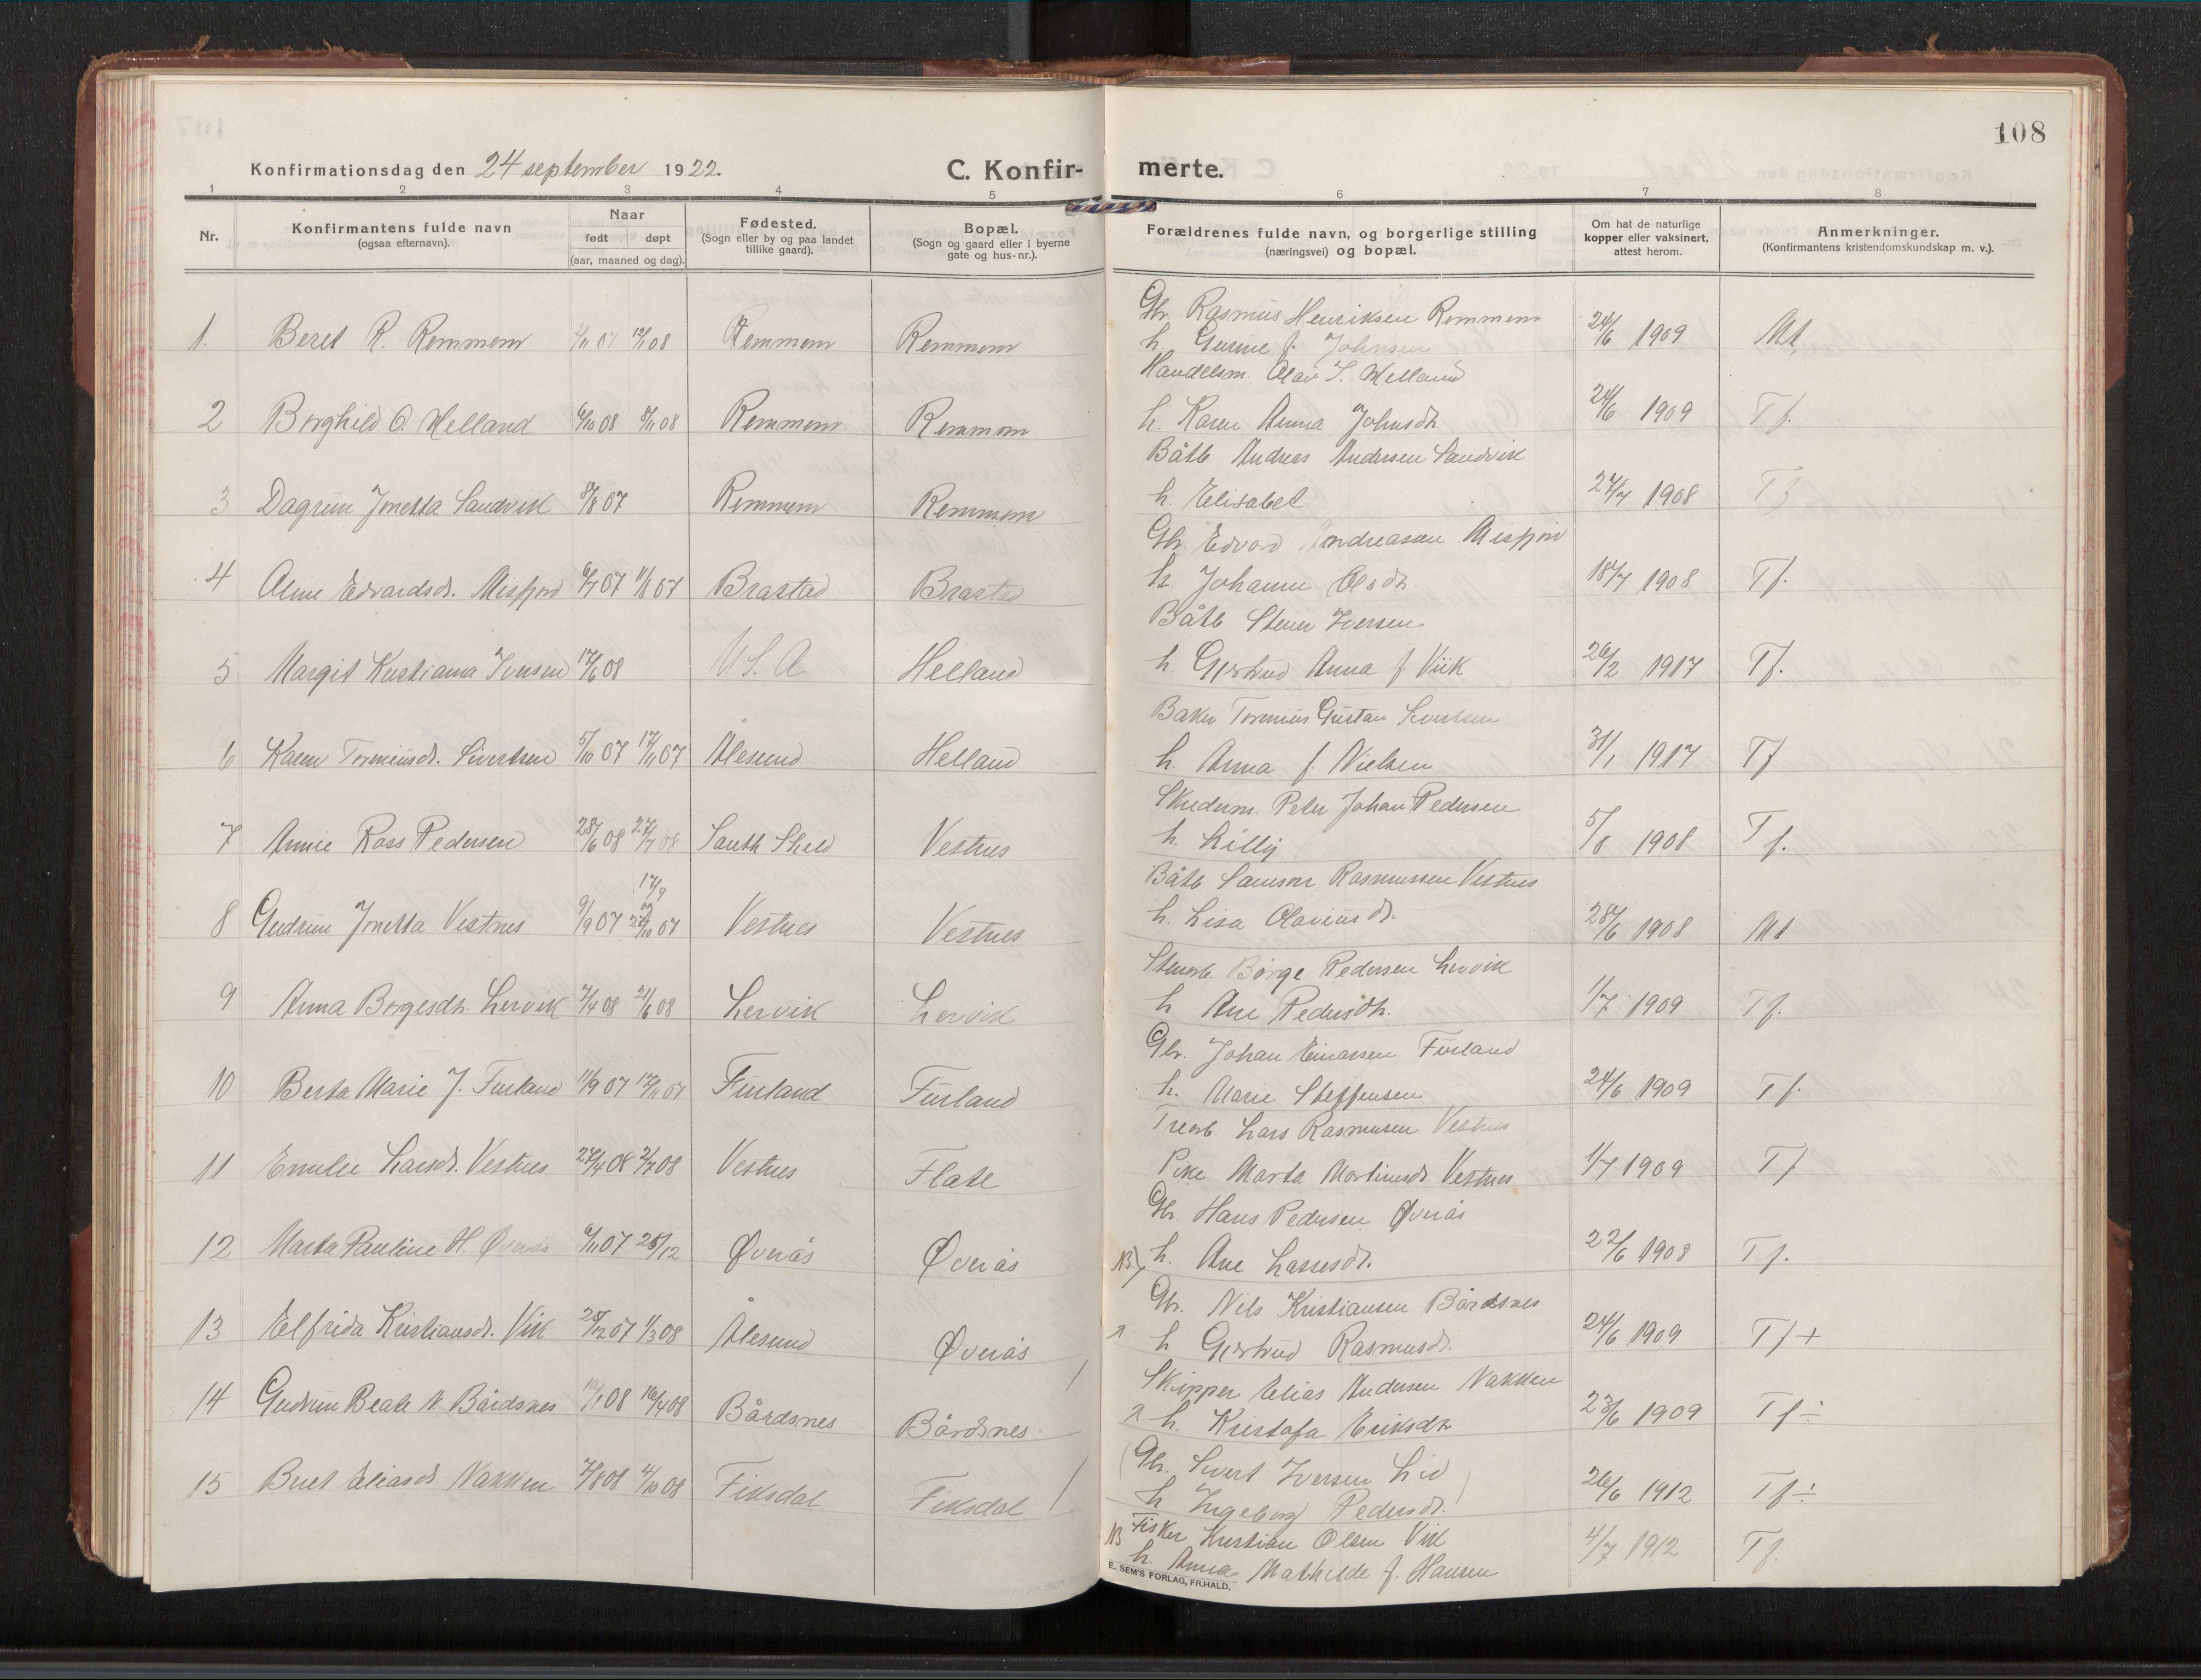 108
Konfirmationsdag den 24 september 1922. C. Konfir- merte.
1 2 3 4 5 6 7 8
Nr. Konfirmantens fulde navn (ogsaa efternavn). Naar født døpt (aar, maaned og dag). Fødested. (Sogn eller by og paa landet tillike gaard). Bopæl. (Sogn og gaard eller i byerne gate og hus-nr.). Forældrenes fulde navn, og borgerlige stilling (næringsvei) og bopæl. Om hat de naturlige kopper eller vaksinert, attest herom. Anmerkninger. (Konfirmantens kristendomskundskap m. v.).
Gbr. Rasmus Henriksen Remmem
1. Beret R. Remmem 2/11 07 12/1 08 Remmem Remmem h. Gurine f. Johnsen 24/6 1909 Mt
Handelsm. Olav S. Helland
2 Borghild O. Helland 6/10 08 8/11 08 Remmem Remmem h. Karen Anna Johnsdtr 24/6 1909 Tf.
Båtb Andreas Andersen Sandvik
3 Dagrun Jonetta Sandvik 8/8 07 Remmem Remmem h. Elisabet 27/7 1908 Tf
Gbr. Edvard Andreassen Misfjord
4 Aline Edvardsdr. Misfjord 6/7 07 11/8 07 Brastad Brastad h. Johanne Olsdtr. 18/7 1908 Tf.
Båtb Stener Iversen
5 Margit Kristiana Iversen 17/6 08 U. S. A Helland h. Gjertrud Anna f Vik 26/2 1917 Tf.
Baker Tormius Gustav Sivertsen
6 Karen Tormiusdr. Sivertsen 5/10 07 17/11 07 Ålesund Helland h. Anna f. Nielsen 31/1 1917 Tf
Skuderm. Peter Johan Pedersen
7 Annie Ross Pedersen 28/6 08 27/7 08 South Sheld Vestnes h. Lilly 5/8 1908 Tf.
Båtb Samson Rasmussen Vestnes
17/9
8 Gudrun Jonetta Vestnes 9/9 07 27/10 07 Vestnes Vestnes h. Lisa Olaviusdr. 28/6 1908 Mt
Stenarb. Børge Pedersen Lervik
9 Anna Børgesdtr. Lervik 7/4 08 21/6 08 Lervik Lervik h Ane Pedersdtr. 1/7 1909 Tf.
Gbr. Johan Einarsen Furland
10 Berta Marie J. Furland 11/9 07 17/11 07 Furland Furland h. Marie Steffensen 24/6 1909 Tf.
Trearb. Lars Rasmussen Vestnes
11 Emilie Larsdr. Vestnes 27/4 08 2/7 08 Vestnes Flate Pike Marta Martinusdr. Vestnes 1/7 1909 Tf
Gbr. Hans Pedersen Øverås
12 Marta Pauline H. Øverås 6/11 07 26/12 Øverås Øverås NB) h. Ane Lassesdr. 22/6 1908 Tf.
Gbr. Nils Kristiansen Bårdsnes
13 Elfrida Kristiansdr. Vik 25/12 07 1/3 08 Ålesund Øverås h Gjertrud Rasmusdr. 24/6 1909 Tf+
Skipper Elias Andersen Nakken
14 Gudrun Beate N. Bårdsnes 19/1 08 16/4 08 Bårdsnes Bårdsnes h. Kristofa Eriksdtr 23/6 1909 Tf÷
(Gbr. Sivert Iversen Lid
15 Beret Eliasdr. Nakken 7/8 08 4/10 08 Fiksdal Fiksdal h Ingeborg Pedersdr.) 26/6 1912 Tf÷
NB Fisker Kristian Olsen Vik 4/7 1912 Tf.
h. Anna Mathilde f. Hansen
E. SEM'S FORLAG, FR.HALD.